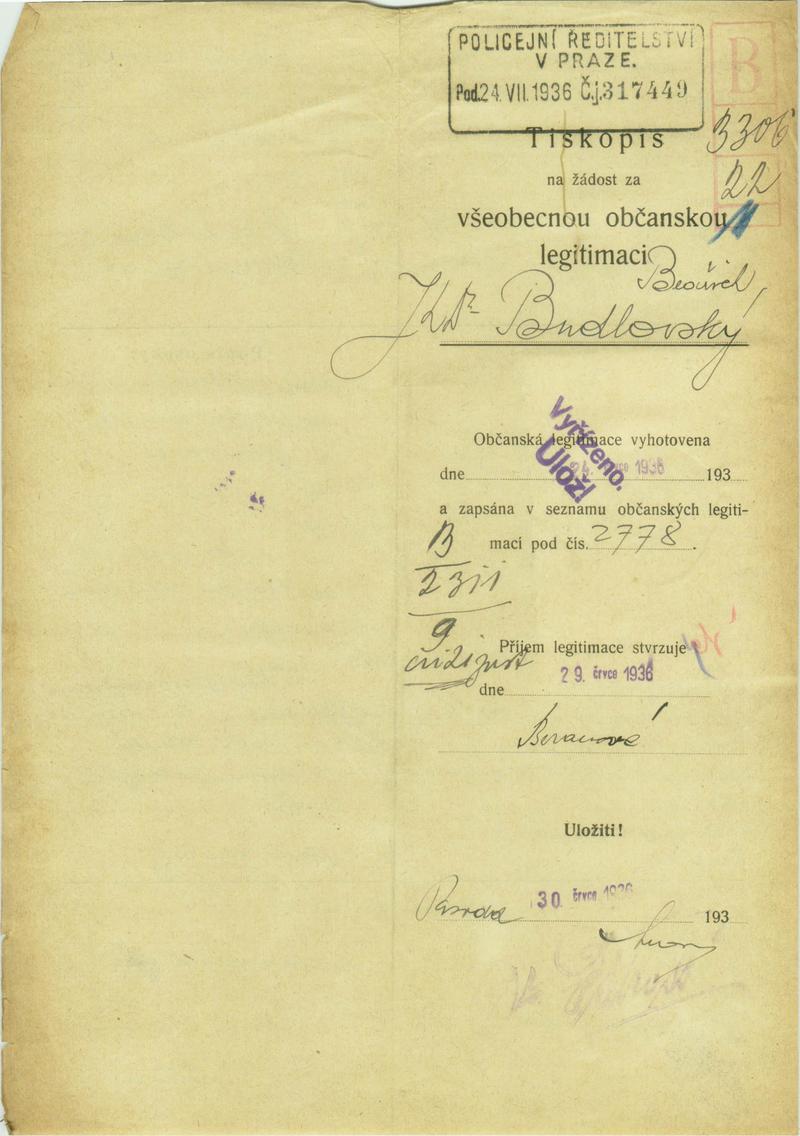 POLICEJNÍ ŘEDITELSTVÍ
V PRAZE.
Pod. 24. VII. 1936 Č.j. 317449
B
3306
22
Tiskopis
na žádost za
všeobecnou občanskou
legitimaci
Budlovský
Vyřízeno.
Uloží
Občanská legitimace vyhotovena
dne 24. července 1936 193
a zapsána v seznamu občanských legiti-
B mací pod čís. 2778.
2311
9
Příjem legitimace stvrzuje
29. črvce 1936
dne
Beranová
Uložiti!
30. črvce 1936
193